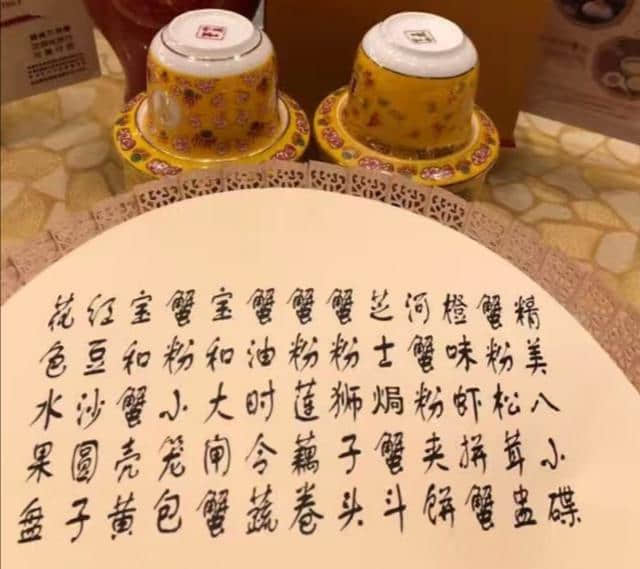 精美八小碟
蟹粉松茸盅
橙味虾拼蟹
河蟹粉夹饼
芝士焗蟹斗
蟹粉狮子头
蟹粉莲藕卷
蟹油时令蔬
宝和大闸蟹
蟹粉小笼包
宝和蟹壳黄
红豆沙圆子
花色水果盘